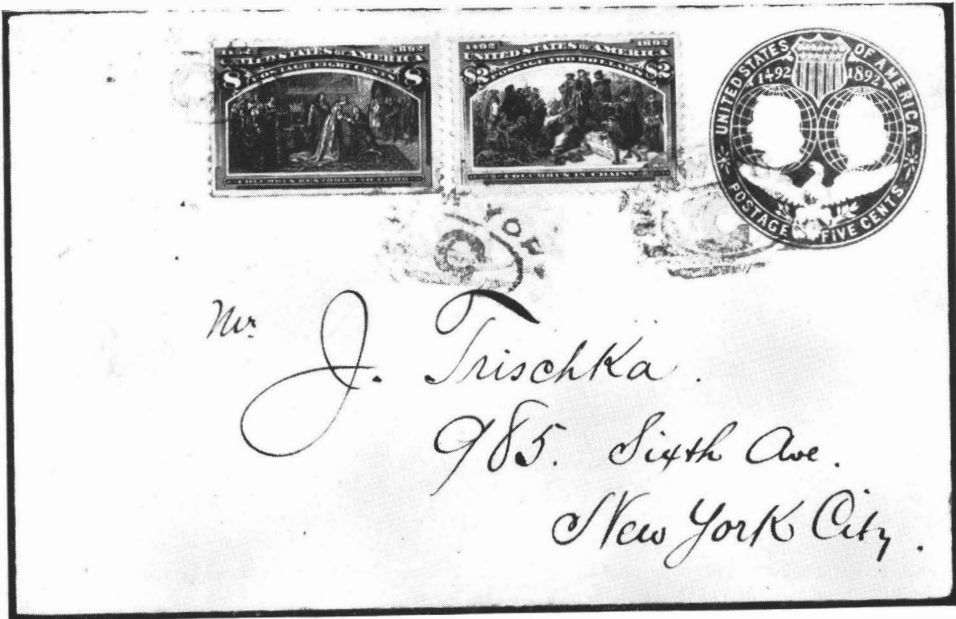 1492 1892
UNITED STATES OF AMERICA
POSTAGE EIGHT CENTS
8 8
COLUMBUS RESTORED TO FAVOR
1492 1892
UNITED STATES OF AMERICA
POSTAGE TWO DOLLARS
$2 $2
COLUMBUS IN CHAINS
UNITED STATES OF AMERICA
1492 1892
POSTAGE FIVE CENTS
Mr.
J. Trischka.
985. Sixth Ave.
New York City.